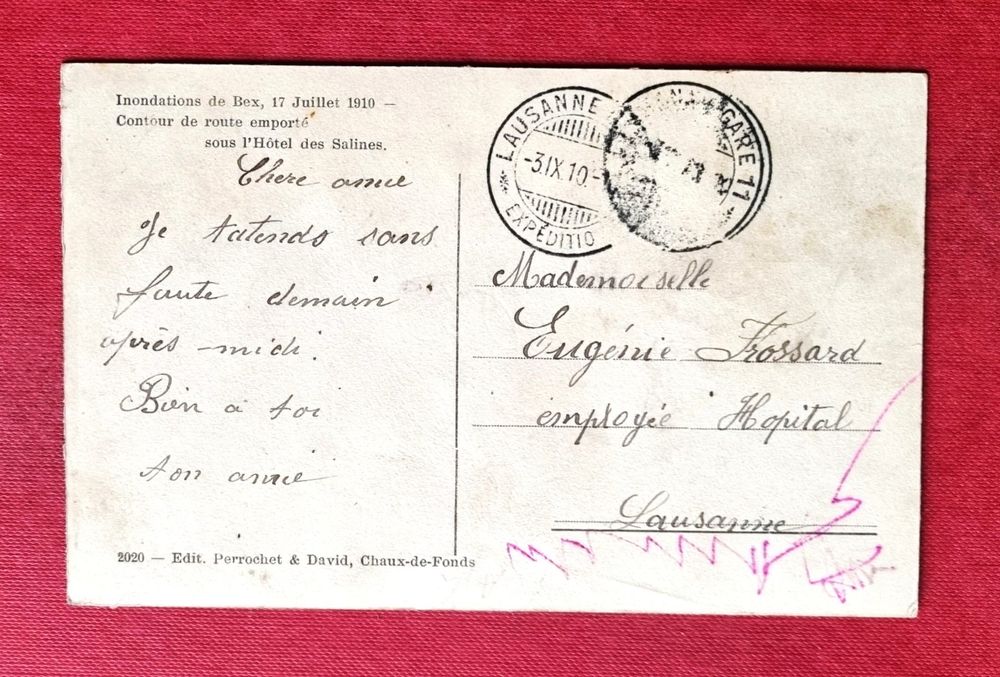 Inondations de Bex, 17 Juillet 1910 —
Contour de route emporté
sous l'Hôtel des Salines.
Chere amie
Je tatends sans
faute demain
après-midi.
Bien à toi
ton amie
2020 — Edit. Perrochet & David, Chaux-de-Fonds
LAUSANNE
-3.IX.10.-
EXPÉDITIO
GARE 11
Mademoiselle
Eugénie Frossard
employée Hopital
Lausanne